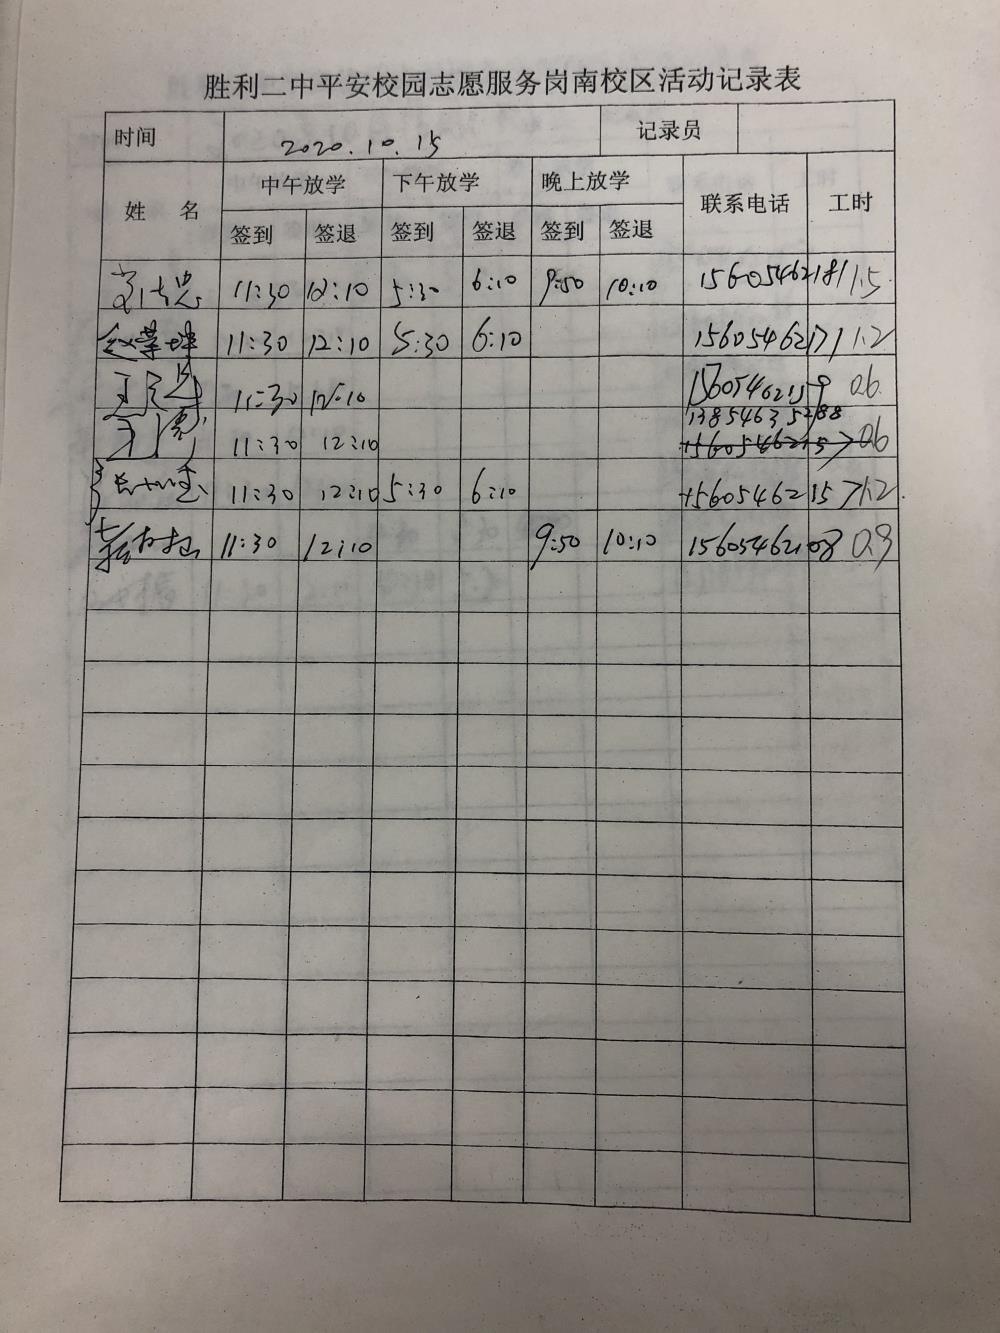 胜利二中平安校园志愿服务岗南校区活动记录表
时间 2020.10.15 记录员
姓 名 中午放学 下午放学 晚上放学 联系电话 工时
签到 签退 签到 签退 签到 签退
11:30 12:10 5:30 6:10 9:50 10:10 15605462181 1.5
11:30 12:10 5:30 6:10 15605462171 1.2
11:30 12:10 15605462159 0.6
11:30 12:10 13854635288 0.6
11:30 12:10 5:30 6:10 15605462157 1.2
11:30 12:10 9:50 10:10 15605462108 0.9